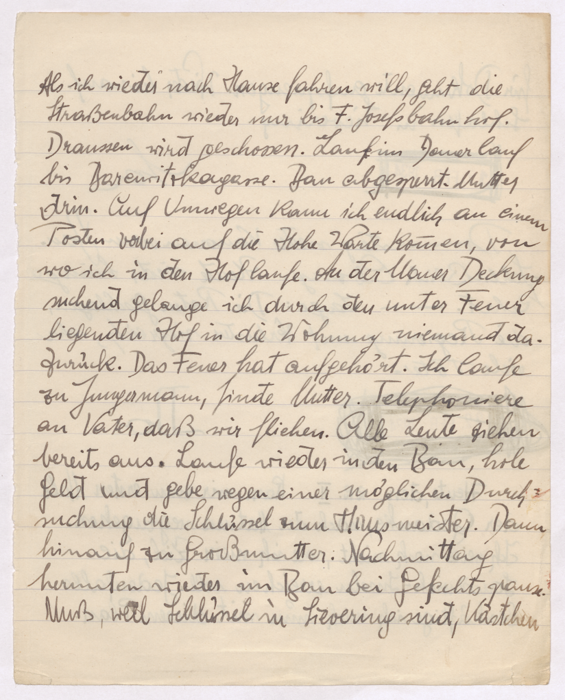 Als ich wieder nach Hause fahren will, geht die
Straßenbahn wieder nur bis F. Josefsbahnhof.
Draussen wird geschossen. Lauf im Dauerlauf
bis Barawitzkagasse. Bau abgesperrt. Mutter
drin. Auf Umwegen kann ich endlich an einem
Posten vorbei auf die Hohe Warte kommen, von
wo ich in den Hof laufe. An der Mauer Deckung
suchend gelange ich durch den unter Feuer
liegenden Hof in die Wohnung niemand da.
Zurück. Das Feuer hat aufgehört. Ich laufe
zu Jungermann, finde Mutter. Telephoniere
an Vater, daß wir fliehen. Alle Leute ziehen
bereits aus. Laufe wieder in den Bau, hole
Geld und gebe wegen einer möglichen Durch-
suchung die Schlüssel zum Hausmeister. Dann
hinauf zu Großmutter. Nachmittag
herunten wieder im Bau bei Gefechtspause.
Muß, weil Schlüssel in Sievering sind, Kästchen